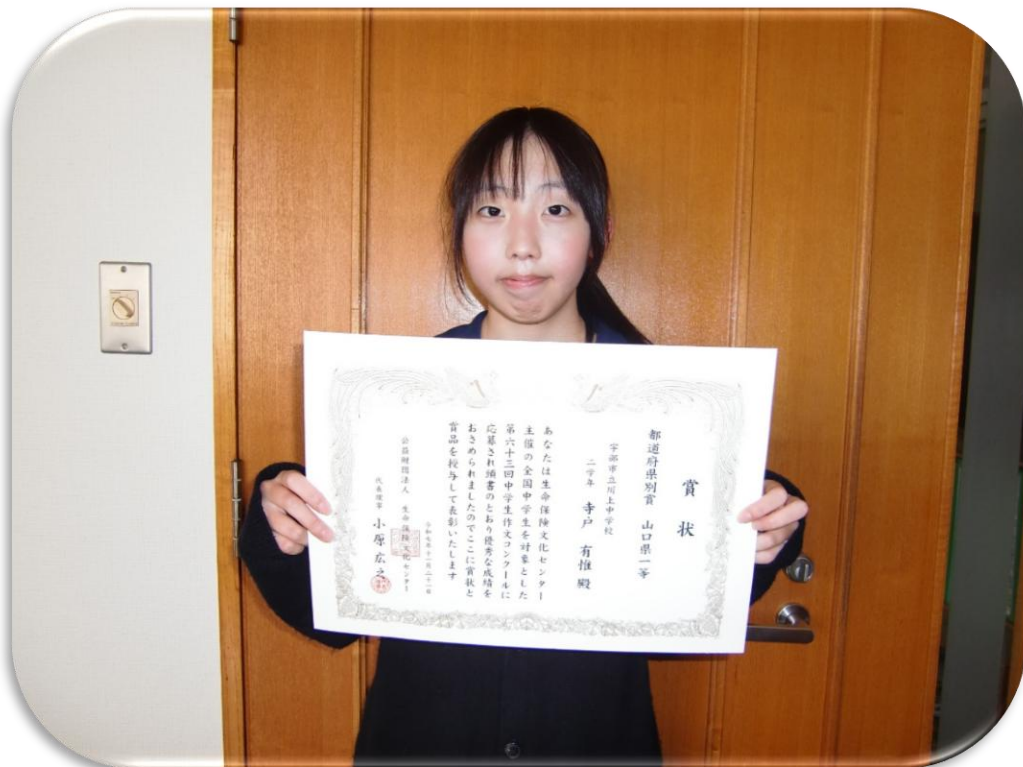 賞状
都道府県別賞 山口県一等
宇部市立川上中学校
二学年 寺戸 有惟 殿
あなたは生命保険文化センター
主催の全国中学生を対象とした
第六十三回中学生作文コンクールに
応募され頭書のとおり優秀な成績を
おさめられましたのでここに賞状と
賞品を授与して表彰いたします
令和七年十一月二十一日
公益財団法人 生命保険文化センター
代表理事 小原広之